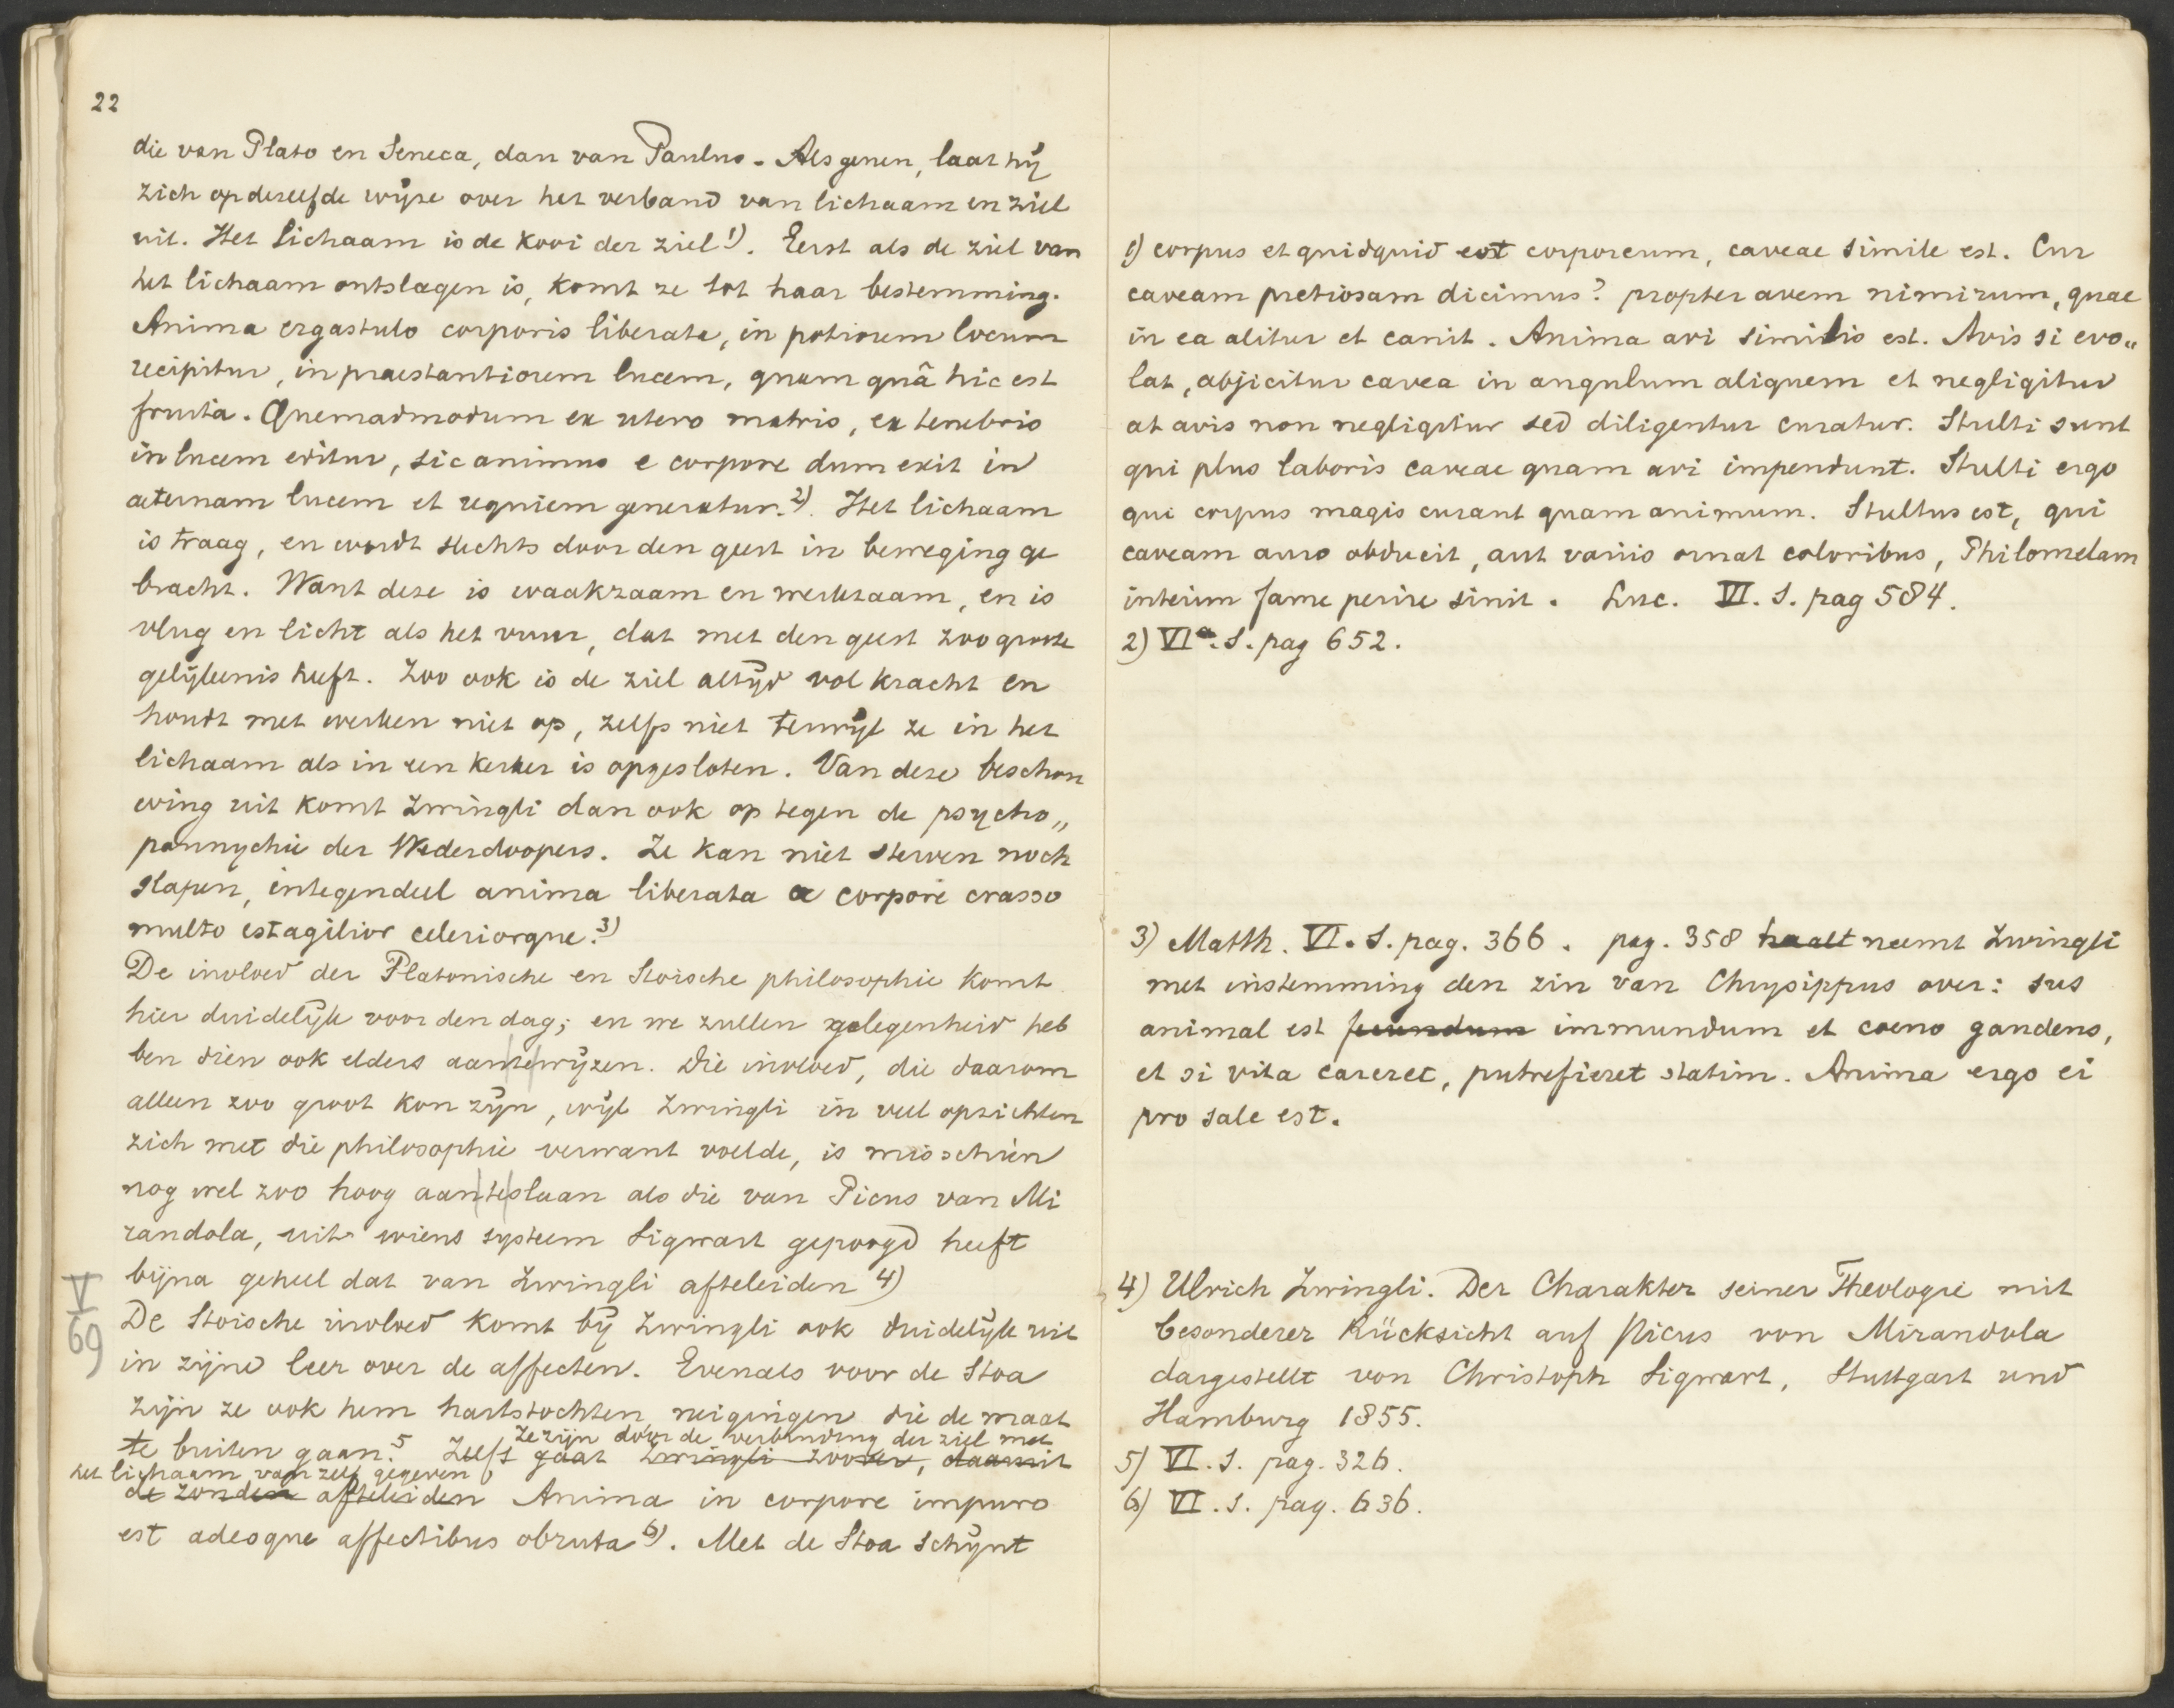 22
die van Plato en Seneca, dan van Paulus. Als genen, laat hij
zich op dezelfde wijze over het verband van lichaam en ziel
uit. Het lichaam is de kooi der ziel 1). Eerst als de ziel van
het lichaam ontslagen is, komt ze tot haar bestemming.
Anima ergastulo corporis liberata, in potiorem locum
recipitur, in praestantiorem lucem, quam quâ hic est
fruita. Quemadmodum ex utero matris, ex tenebris
in lucem editur, sic animus e corpore dum exit in
aeternam lucem et requiem generatur. 2). Het lichaam
is traag, en wordt slechts door den geest in beweging ge
bracht. Want deze is waakzaam en werkzaam, en is
vlug en licht als het vuur, dat met den geest zoo groote
gelijkenis heeft. Zoo ook is de ziel altijd vol kracht en
houdt met werken niet op, zelfs niet terwijl ze in het
lichaam als in een kerker is opgesloten. Van deze beschou
wing uit komt Zwingli dan ook op tegen de psycho„
pannychie der Wederdoopers. Ze kan niet sterven noch
slapen, integendeel anima liberata a corpore crasso
multo est agilior celeriorque. 3)
De invloed der Platonische en Stoische philosophie komt
hier duidelijk voor den dag; en we zullen gelegenheid heb
ben dien ook elders aan te wijzen. Die invloed, die daarom
alleen zoo groot kon zijn, wijl Zwingli in veel opzichten
zich met die philosophie verwant voelde, is misschien
nog wel zoo hoog aan te slaan als die van Picus van Mi
randola, uit wiens systeem Sigwart gepoogd heeft
bijna geheel dat van Zwingli afteleiden 4)
V
69
De Stoische invloed komt bij Zwingli ook duidelijk uit
in zijne leer over de affecten. Evenals voor de Stoa
zijn ze ook hem hartstochten, neigingen die de maat
ze zijn door de verbinding der ziel met
te buiten gaan. 5 Zelfs gaat Zwingli zoover, daaruit
het lichaam van zelf gegeven
de zonden afteleiden Anima in corpore impuro
est adeoque affectibus obruta 6). Met de Stoa schijnt
1) corpus et quidquid est corporeum, caveae simile est. Cur
caveam pretiosam dicimus? propter avem nimirum, quae
in ea alitur et canit. Anima avi similis est. Avis si evo„
lat, abjicitur cavea in angulum aliquem et negligitur
at avis non negligitur sed diligentur curatur. Stulti sunt
qui plus laboris caveae quam avi impendunt. Stulti ergo
qui corpus magis curant quam animum. Stultus est, qui
caveam auro obducit, aut variis ornat coloribus, Philomelam
interim fame perire sinit. Luc. VI. S. pag 584.
2) VIa. S. pag 652.
3) Matth. VI. S. pag. 366. pag. 358 haalt neemt Zwingli
met instemming den zin van Chrysippus over: sus
animal est fecundum immundum et coeno gaudens,
et si vita careret, putrefieret statim. Anima ergo ei
pro sale est.
4) Ulrich Zwingli. Der Charakter seiner Theologie mit
besonderer Rücksicht auf Picus von Mirandola
dargestellt von Christoph Sigwart, Stuttgart und
Hamburg 1855.
5) VI. S. pag. 326.
6) VI. S. pag. 636.